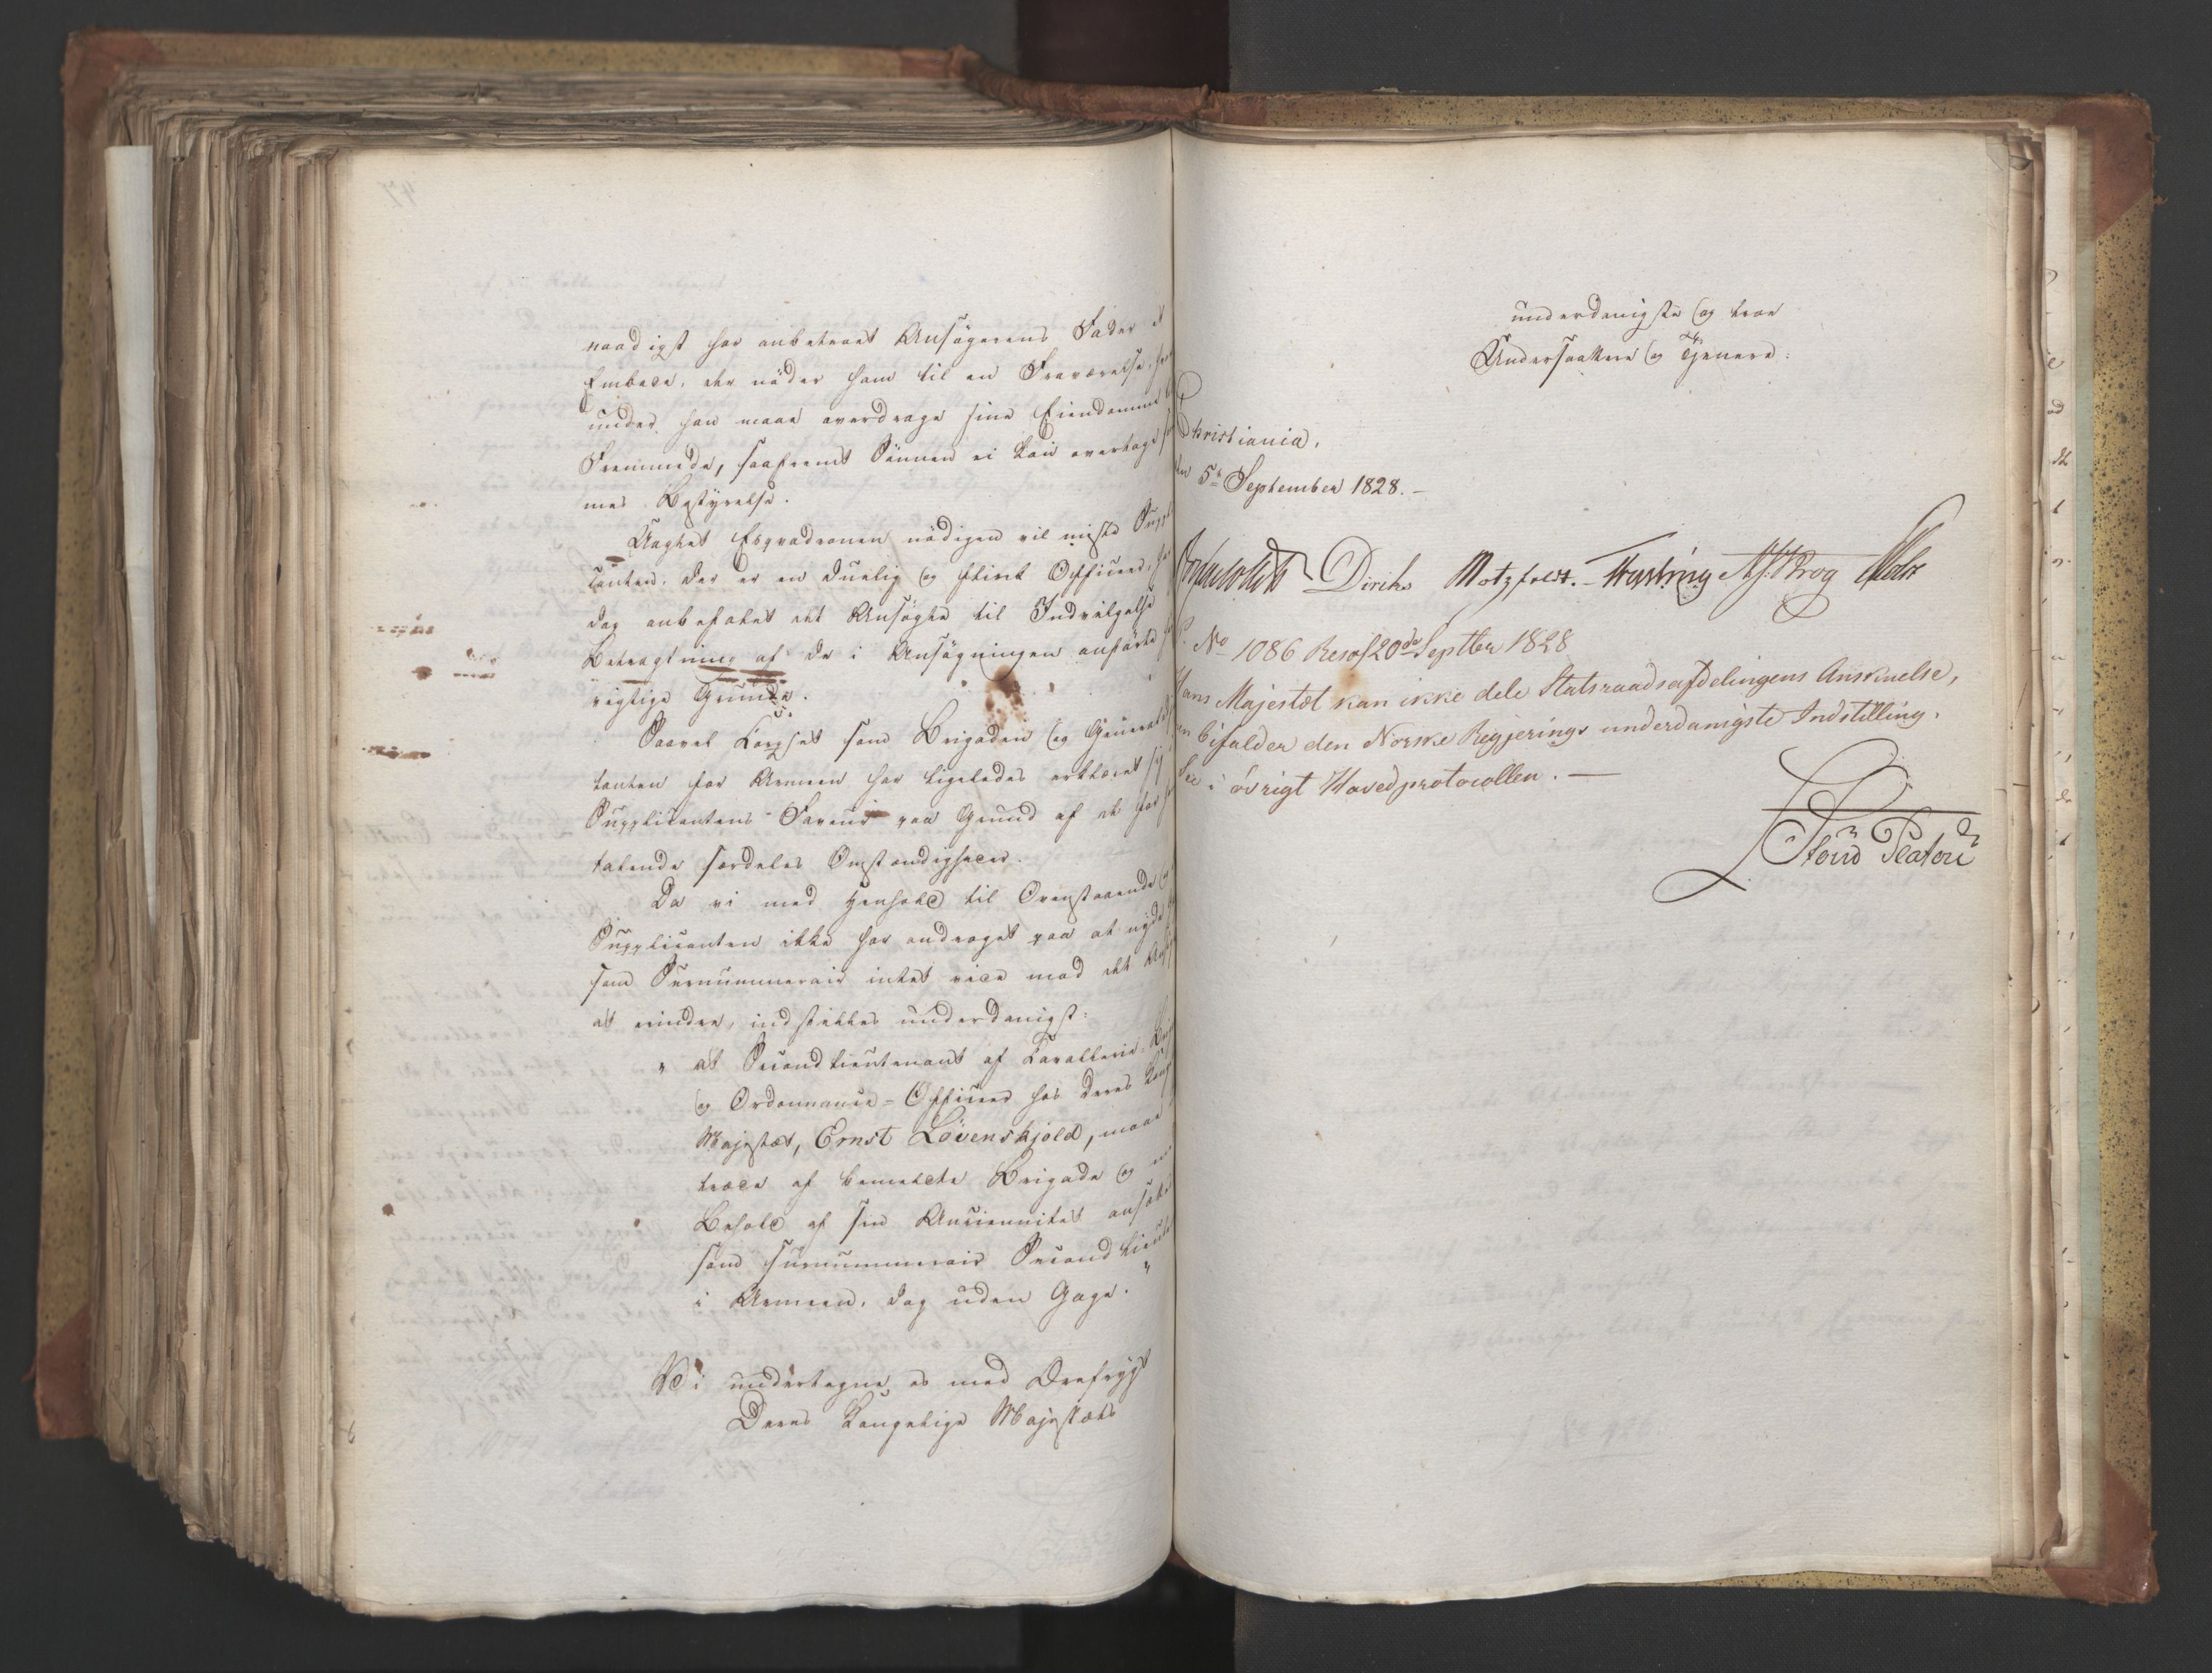 naadigst har anbetroet Ansøgerens Fader et
Embede, der nøder ham til en Fraværelse, hvor
under han maae overdrage sine Eiendomme til
Fremmede, saafremt Sønnen ei kan overtage sam
mes Bestyrelse.
Uagtet Esqvadronen nødigen vil miste Suppli
canten, der er en duelig og flink Officeer, har
dog anbefalet det Ansøgte til Indvilgelse
Betragtning af de i Ansøgningen anførte
vigtige Grunde.
Saavel Corpset som Brigaden og Generaladju
tanten for Armeen har ligeledes erklæret sig i
Supplicantens Faveur paa Grund af de for ham
talende særdeles Omstændigheder.
Da vi med Henhold til Ovenstaaende og
Supplicanten ikke har andraget paa at nyde
som Surnummerair intet vide mod det Ansøgte
at erindre, indstilles underdanigst:
" at Secondlieutenant af Cavallerie-Brig
og Ordonnance-Officeer hos Deres Kongl
Majestæt, Ernst Løvenskjold, maae
træde af bemeldte Brigade og med
Behold af sin Anciennitet ansættes
som surnummerair Second Lieute
i Armeen, dog uden Gage. "
Vi undertegne os med Ærefrygt
Deres Kongelige Majestæts
underdanigste og troe
Undersaatter og Tjenere.
Christiania,
den 5te September 1828.—
Diriks Motzfeldt. Fasting Krog Holst
No 1086 Resol 20de Septber 1828
Hans Majestæt kan ikke dele Statsraadsafdelingens Anskuelse,
men bifalder den Norske Regjerings underdanigste Indstilling.
See i øvrigt Hovedprotocollen.—